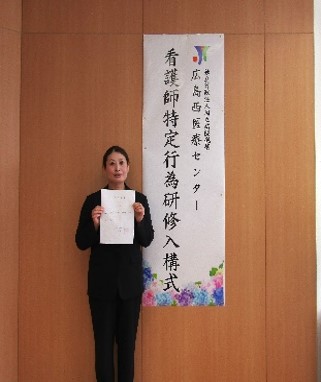 広島西医療センター
看護師特定行為研修入構式